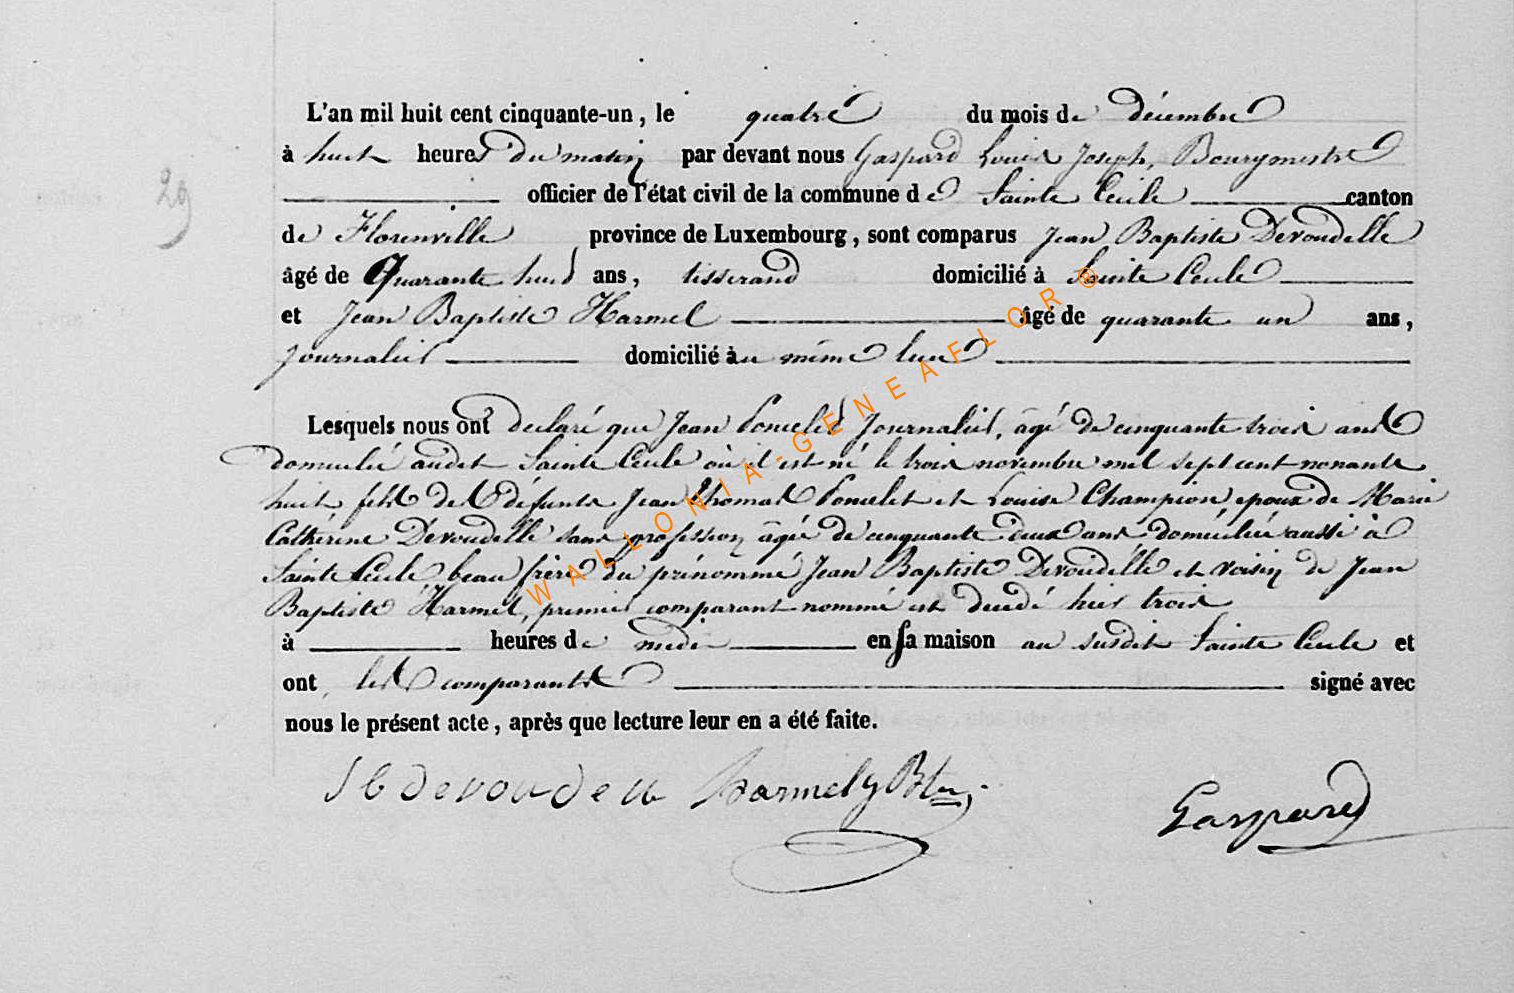 L'an mil huit cent cinquante-un, le quatre du mois de décembre
à huit heures du matin par devant nous Gaspard Louis Joseph, Bourgmestre
29
officier de l'état civil de la commune de Sainte Cécile canton
de Florenville province de Luxembourg, sont comparus Jean Baptiste Devoudelle
âgé de Quarante huit ans, tisserand domicilié à Sainte Cecile
et Jean Baptiste Harmel âgé de quarante un ans,
journalier domicilié au même lieu
Lesquels nous ont declaré que Jean Poncelet Journalier, âgé de cinquante trois ans
domicilié audit Sainte Cecile où il est né le trois novembre mil sept cent nonante
huit, fils de défunts Jean Thomas Poncelet et Louise Champion, epoux de Marie
Cathérine Devoudelle sans profession âgée de cinquante deux ans domiciliée aussi à
Sainte Cecile, beau frère du prénommé Jean Baptiste Devoudelle et voisin de Jean
Baptiste Harmel, premier comparant nommé est decedé hier trois
à heures de midi en sa maison au susdit Sainte Cecile et
ont les comparants signé avec
nous le présent acte, après que lecture leur en a été faite.
J b devoudell Harmel J Bte Gaspard
WALLONIA-GENEAFLOR@